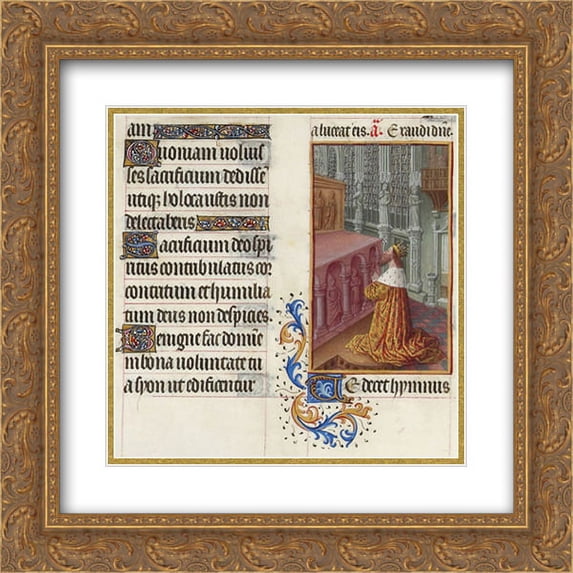 am
Quoniam uoluis
ses sacrificium dedissē
utiq; holocaustis non
delectaberis
Sacrificium deo spi
ritus contribulatus cor
contritum et humilia
tum deus non despicies.
Benigne fac domīe
in bona uoluntate tu
a syon ut edificentur
a lucrat eis. a. Exaudi dn̄e.
Te decet hymnus